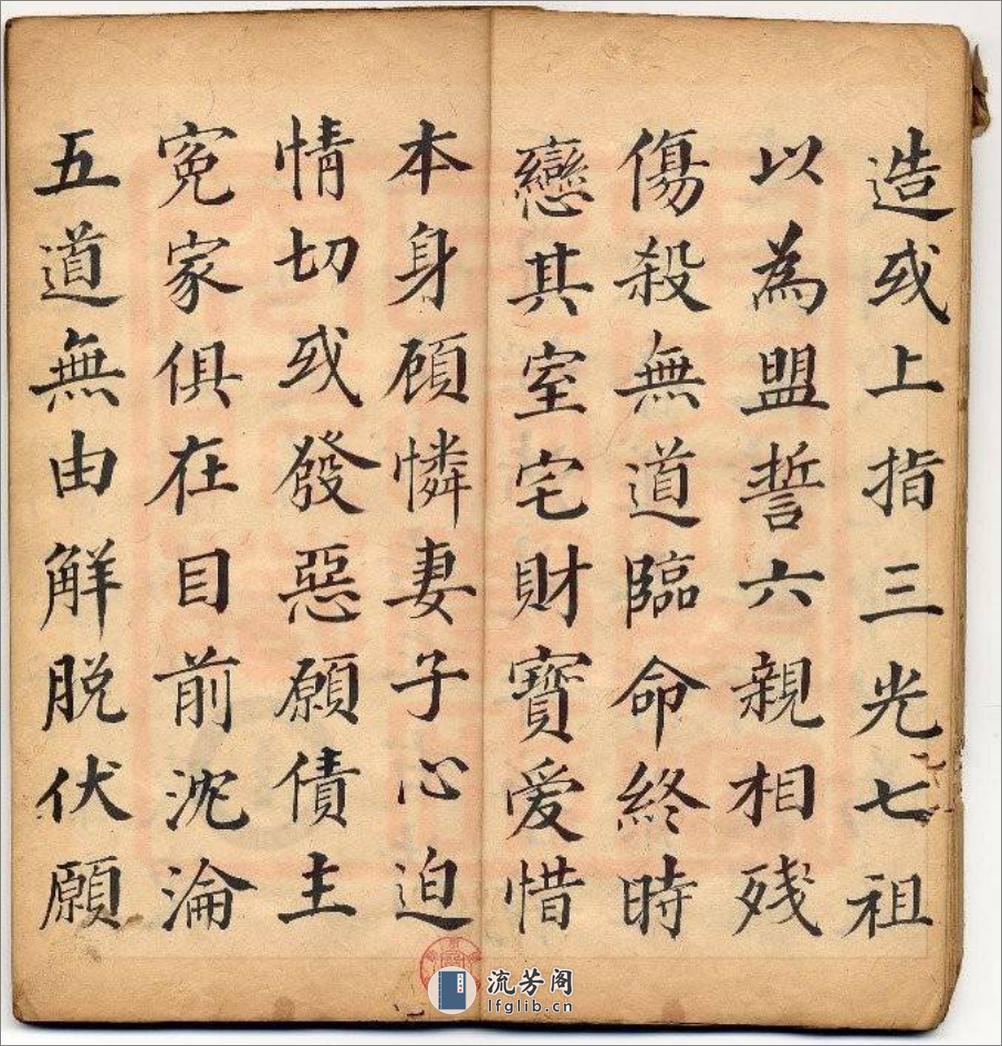 造或上指三光七祖
以為盟誓六親相残
傷殺無道臨命終時
戀其室宅財寳爱惜
本身顧憐妻子心迫
情切或發惡願債主
寃家俱在目前沈淪
五道無由解脱伏願
流芳阁
lfglib.cn